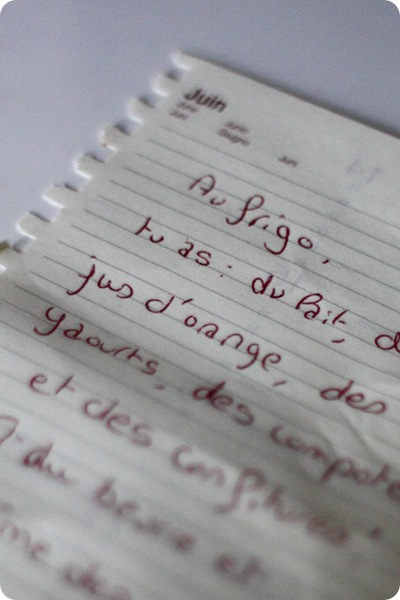 Juin
Au frigo,
tu as : du lait,
jus d'orange, des
yaourts, des
et des confitures
du beurre et